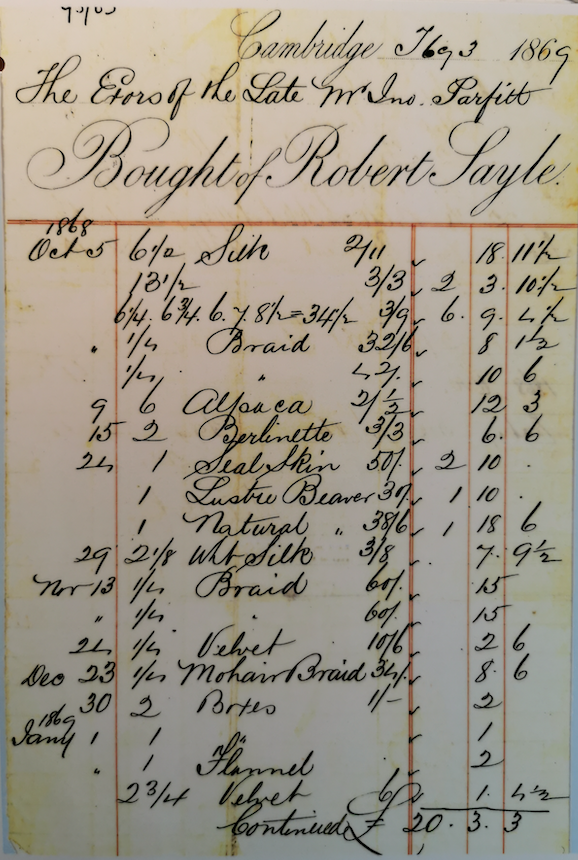 Cambridge Feby 3 1869
The Exors of the Late Mr Jno. Parfitt
Bought of Robert Sayle.
1868
Oct 5 6 1/2 Silk 2/11 18. 11 1/2
13 1/2 3/3 2 3. 10 1/2
6 1/4. 6 3/4. 6. 7. 8 1/2 = 34 1/2 3/9 6. 9. 4 1/2
" 1/4 Braid 32/6 8 1 1/2
1/4 " 42/. 10 6
9 6 Alpaca 2/ 1/2 12 3
15 2 Berlinette 3/3 6. 6
24 1 Seal Skin 50/. 2 10 .
1 Lustre Beaver 30/. 1 10 .
1 Natural " 38/6 1 18 6
29 2 1/8 Wt Silk 3/8 7. 9 1/2
Nov 13 1/4 Braid 60/. 15
" 1/4 " 60/. 15
24 1/4 Velvet 10/6 2 6
Dec 23 1/4 Mohair Braid 34/. 8. 6
30 2 Boxes 1/- 2
1869
Jany 1 1 " 1
" 1 Flannel 2
2 3/4 Velvet 6 1. 4 1/2
Continued £ 20. 3. 3